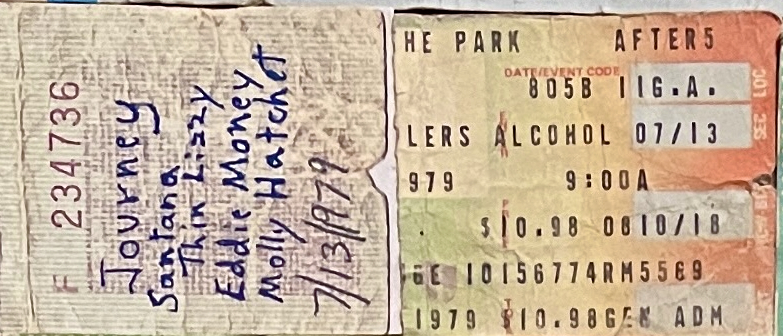 F 234736
Journey
Santana
Thin Lizzy
Eddie Money
Molly Hatchet
7/13/1979
HE PARK AFTER5
DATE/EVENT CODE
805B IG.A.
LERS ALCOHOL 07/13
979 9:00A
. $10.98 0810/18
GE 10156774RM5569
1979 $10.98GEN ADM
SEC LOC